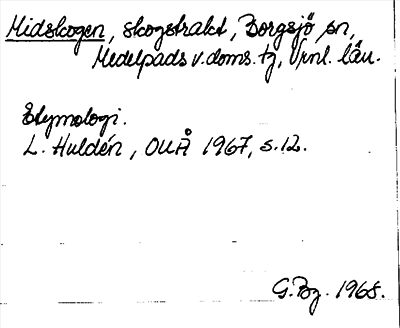 Midskogen, skogstrakt, Borgsjö sn,
Medelpads v. doms. tg, Vrnl. län.
Etymologi.
L. Huldén, OUÅ 1967, s. 12.
G. Bg. 1968.